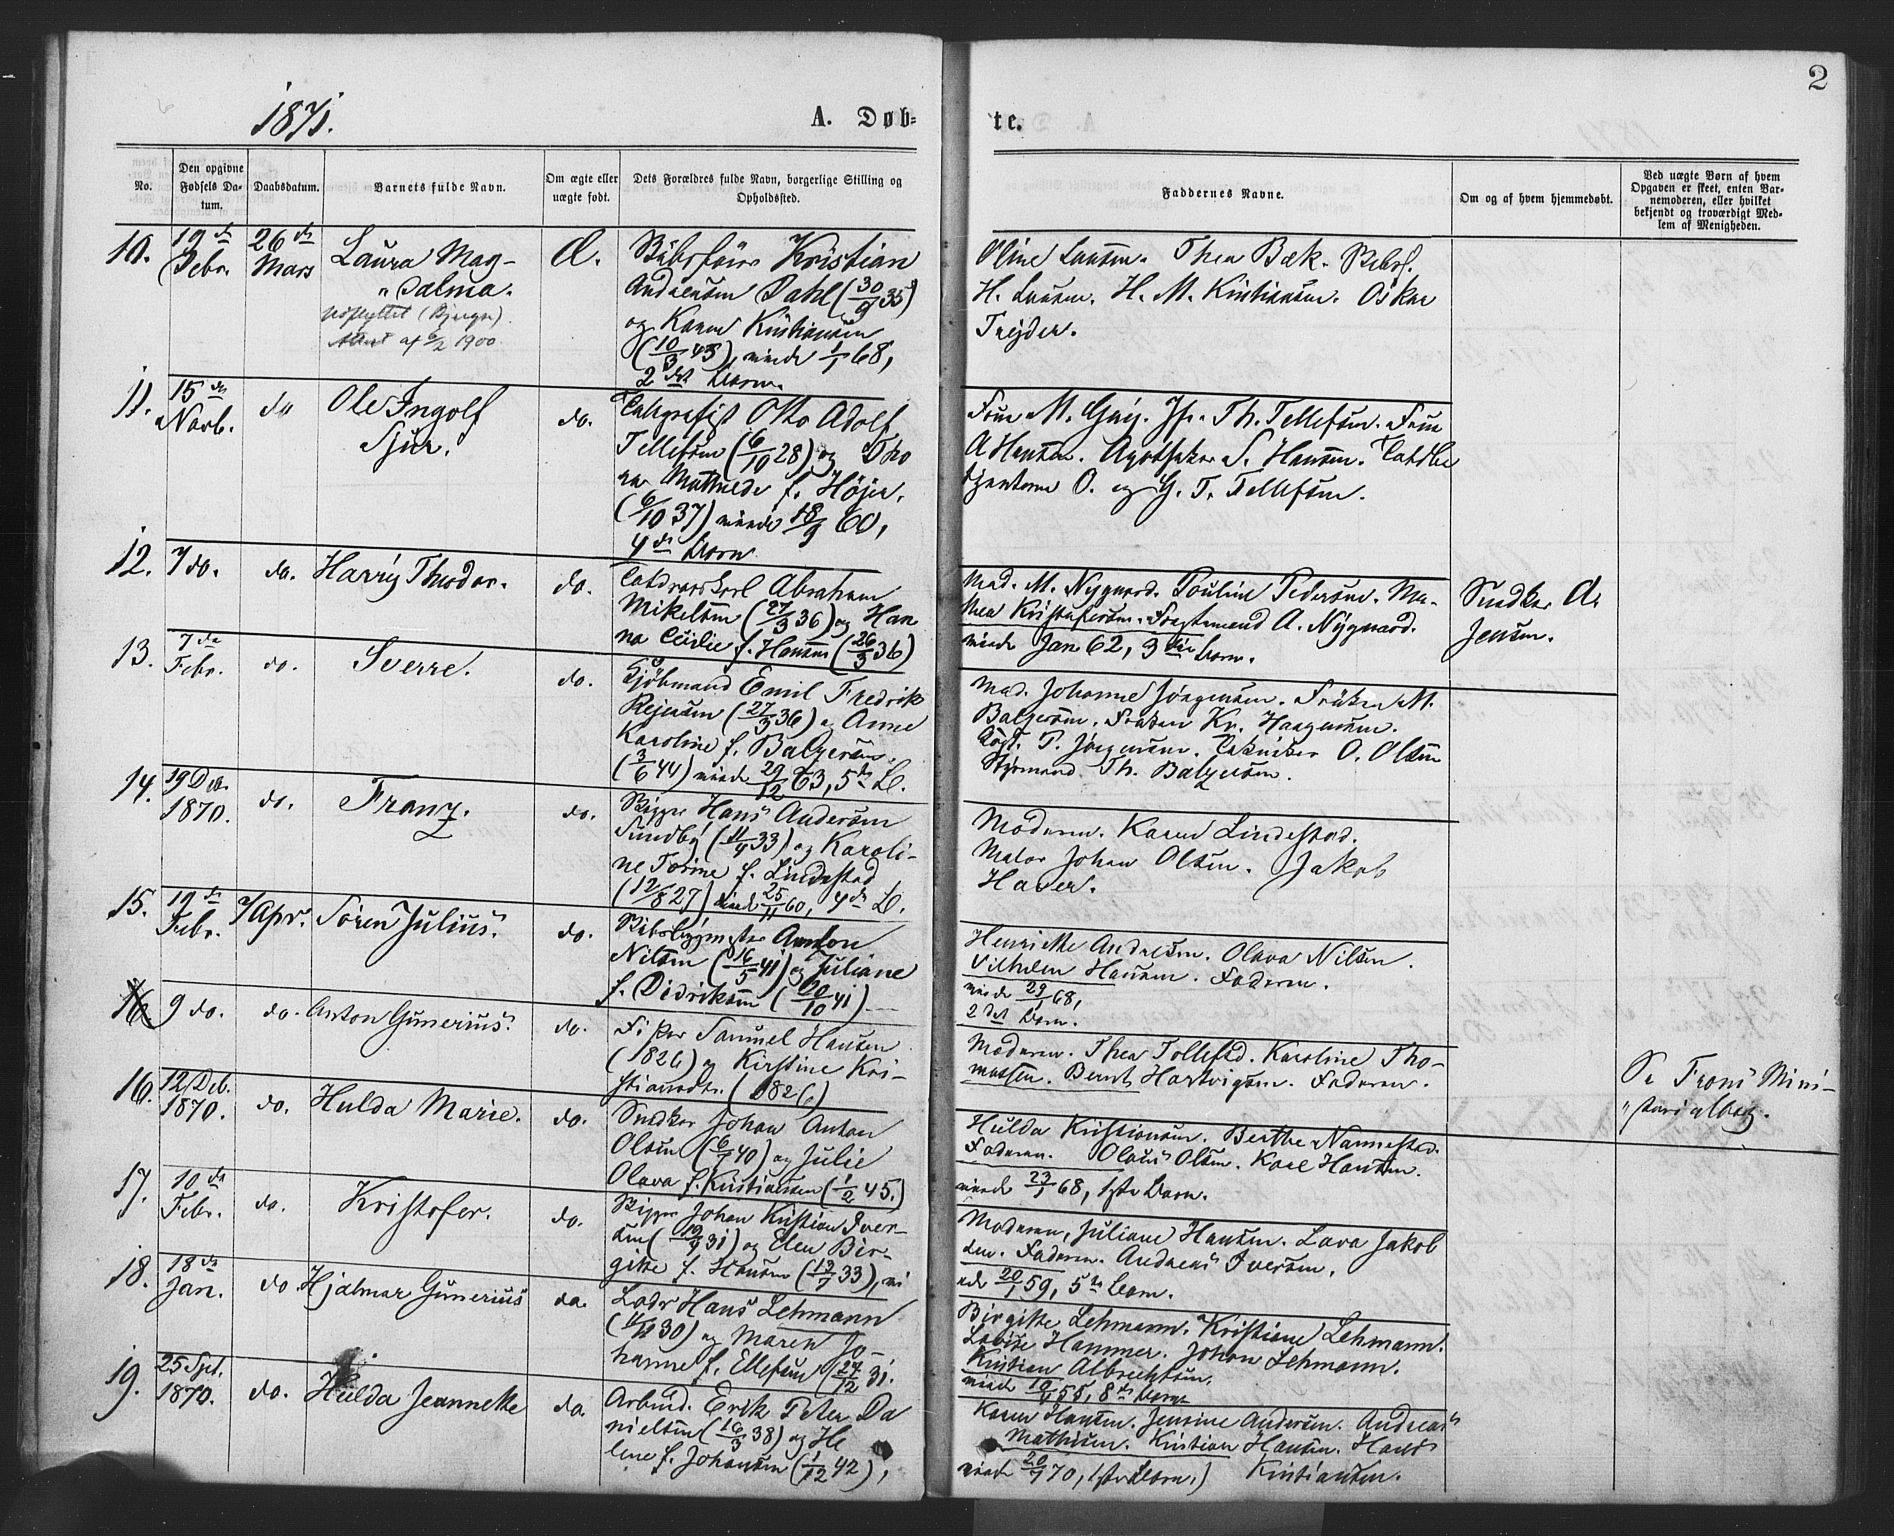 2
1871.
A. Døb=
te.
No.
Den opgivne Fødsels Da-tum.
Daabsdatum.
Barnets fulde Navn.
Om ægte eller uægte født.
Dets Forældres fulde Navn, borgerlige Stilling og Opholdssted.
Faddernes Navne.
Om og af hvem hjemmedøbt.
Ved uægte Børn af hvem Opgaven er skeet, enten Bar-nemoderen, eller hvilket bekjendt og troværdigt Med-lem af Menigheden.
10. 19de Febr. 26de Mars Laura Mag-
"dalma.
af 6/2 1900.
Kristian
Andreasen Dahl (30/9 35)
og Karen Kristiansen
(10/3 43), viede 1/1 68,
2det Barn.
Oline Larsen. Thea Bæk.
H. Larsen. H. M. Kristiansen. Oskar
Trejder.
11. 15de Novb. do Ole Ingolf
Sjur.
do.
Otto Adolf
Tellefsen (6/10 28) og Tho
ra Mathilde f. Højer.
(6/10 37) viede 18/9 60,
4de Barn
Th. Tellefsen. Frue
A Hansen. Apotheker S. Hansen.
O. og G. T. Tellefsen.
12. 7 do. do. Harry Theodor. do.
Abraham
Mikelsen (27/3 36) og Han
na Cecilie f. Hansen (26/3 36)
Mad. M. Nygaard. Pauline Pedersen. Ma-
thea Kristofersen. A. Nygaard.
viede Jan 62, 3die Barn.
Snedker A.
Jensen.
13. 7de Febr. do. Sverre. do.
Kjøbmand Emil Fredrik
Rejersen (27/3 36) og Anne
Karoline f. Balgersen.
(3/6 44) viede 29/12 63, 5te B.
Mad. Johanne Jørgensen. Frøken M.
Balgersen. Frøken Kr. Haagensen.
P. Jørgensen. O. Olsen
Styrmand Th. Balgersen.
14. 19 Dec. 1870. do. Franz. do.
Skipper Hans Andersen
Sundby (11/4 33) og Karoli-
ne Torine f. Lindestad
(12/8 27) viede 25/11 60, 4de B.
Moderen. Karen Lindestad.
Maler Johan Olsen. Jakob
Haver.
15. 19de Febr. 7 Apr. Søren Julius. do.
Skibsbygmester Anton
Nilsen (16/5 41) og Juliane
f. Didriksen (20/10 41)
Henriette Andersen. Olava Nilsen.
Vilhelm Hansen. Faderen.
viede 29/1 68,
2det Barn.
16. 9 do. do. Anton Gunerius. do.
Fisker Samuel Hansen
(1826) og Kirstine Kri-
stiansdtr. (1826)
Moderen. Thea Tollefsd. Karoline Tho-
massen. Bernt Hartvigsen. Faderen.
Se Frons Mini-
"sterialbog.
16. 12 Deb. 1870. do. Hulda Marie. do.
Snedker Johan Anton
Olsen (6/1 40) og Julie
Olava f. Kristiansen (1/2 45.)
Hulda Kristiansen. Berthe Nannestad.
Faderen. Olaus Olsen. Karl Hansen.
viede 23/1 68, 1ste Barn.
17. 10de Febr. do. Kristofer. do.
Skipper Johan Kristian Iver-
sen (19/9 31) og Elen Bir-
gitte f. Hansen (12/7 33), vi
Moderen, Juliane Hansen. Lava Jakob
sen. Faderen. Andreas Iversen.
ede 20/1 59, 5te Barn.
18. 18de Jan. do Hjalmar Gunerius do.
Lods Hans Lehmann
(11/11 30) og Maren Jo-
hanne f. Ellefsen (27/12 31.
Birgitte Lehmann. Kristiane Lehmann.
Lovise Hammer. Johan Lehmann.
Kristian Albrechtsen.
viede 10/4 55, 8de Barn
19. 25 Sept. 1870. do. Hulda Jeannette do.
Arbmd. Erik Peter Da
nielsen (16/3 38) og He
lene f. Johansen (1/12 42),
Karen Hansen. Jensine Andersen. Andreas
Mathisen. Kristian Hansen. Hans
viede 20/7 70, 1ste Barn.) Kristiansen.